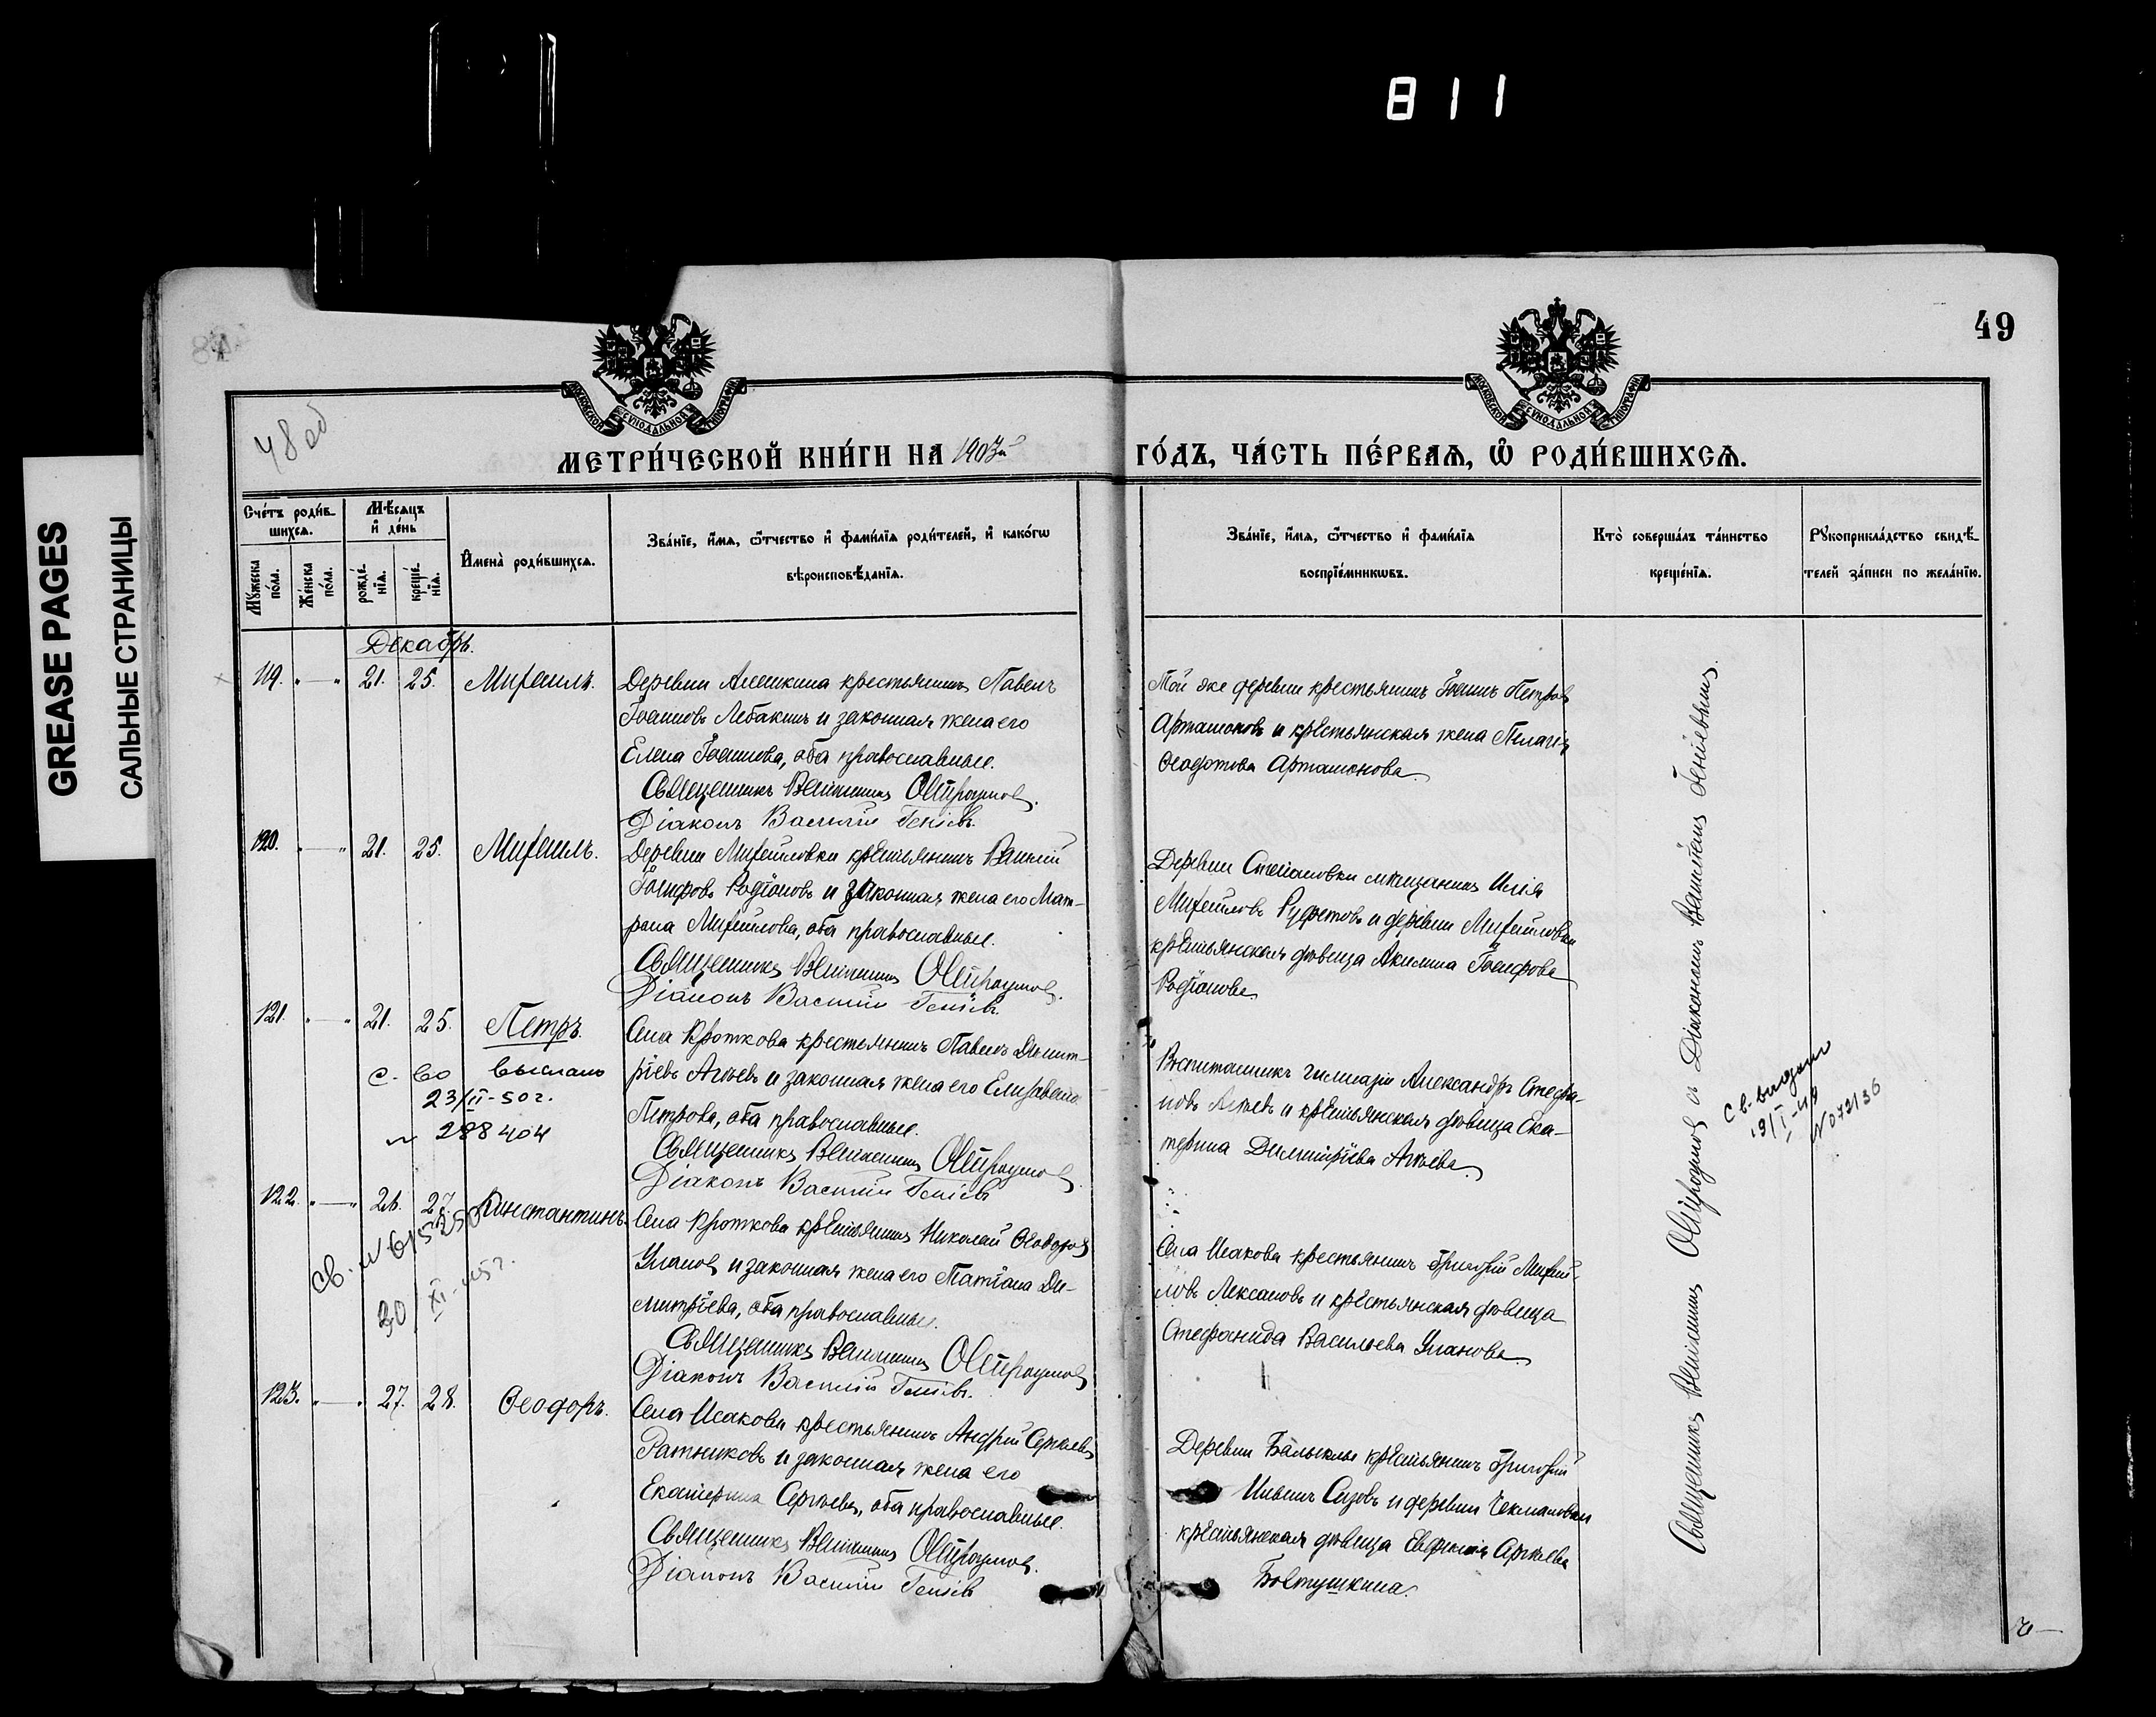 811
GREASE PAGES
САЛЬНЫЕ СТРАНИЦЫ
49
МОСКОВСКОЙ СѴНОДАЛЬНОЙ ТИПОГРАФІИ
МОСКОВСКОЙ СѴНОДАЛЬНОЙ ТИПОГРАФІИ
МЕТРИ́ЧЕСКОЙ КНИ́ГИ НА 1903й ГО́ДЪ, ЧА́СТЬ ПЕ́РВАѦ, Ѡ҆ РОДИ́ВШИХСѦ.
Сче́тъ роди́в-
шихсѧ.
Мꙋ́жеска по́ла.
Же́нска по́ла.
Мѣ́сѧцъ
и҆ де́нь
рожде́-
нїѧ.
креще́-
нїѧ.
И҆мена̀ роди́вшихсѧ.
Зва́нїе, и҆́мѧ, ѻ҆́тчество и҆ фами́лїѧ роди́телей, и҆ како́гѡ
вѣроисповѣ́данїѧ.
Зва́нїе, и҆́мѧ, ѻ҆́тчество и҆ фами́лїѧ
воспрїе́мникѡвъ.
Кто̀ соверша́лъ та́инство
креще́нїѧ.
Рꙋкоприкла́дство свидѣ́-
телей за́писи по жела́нїю.
Декабрь.
119. " — " 21. 25. Михаилъ.
Деревни Алешкина крестьянинъ Павелъ
Іоанновъ Лебакинъ и законная жена его
Елена Іоаннова, оба православные.
Священникъ Веніаминъ Остроумовъ.
Діаконъ Василій Геніевъ.
Той же деревни крестьянинъ Іоаннъ Петровъ
Арташоновъ и крестьянская жена Пелагія
Ѳеодотова Арташонова.
120. " — " 21. 25. Михаилъ.
Деревни Михайловки крестьянинъ Василій
Іосифовъ Родіоновъ и законная жена его Мат-
рона Михайлова, оба православные.
Священникъ Веніаминъ Остроумовъ.
Діаконъ Василій Геніевъ.
Деревни Степановки мѣщанинъ Илія
Михайловъ и деревни Михайловки
крестьянская дѣвица Акилина Іосифова
Родіонова.
121. " — " 21. 25. Петръ.
с-во выслано
23/II-50г.
№ 288404
Села Кроткова крестьянинъ Павелъ Димит-
ріевъ Агѣевъ и законная жена его Елизавета
Петрова, оба православные.
Священникъ Веніаминъ Остроумовъ.
Діаконъ Василій Геніевъ
Воспитанникъ гимназіи Александръ Стефа-
новъ Агѣевъ и крестьянская дѣвица Ека-
терина Димитріева Агѣева.
Св. выдано
19/I-49
№072136
122. " — " 26. 27. Константинъ.
Св. № 615250
30/XI-45г.
Села Кроткова крестьянинъ Николай Ѳеодоровъ
Улановъ и законная жена его Татіана Ди-
митріева, оба православные.
Священникъ Веніаминъ Остроумовъ
Діаконъ Василій Геніевъ.
Села Исакова крестьянинъ Григорій Михай-
ловъ Лексановъ и крестьянская дѣвица
Стефанида Васильева Уланова.
123. " — " 27. 28. Ѳеодоръ.
Села Исакова крестьянинъ Андрей Сергѣевъ
Ратниковъ и законная жена его
Екатерина Сергѣева, оба православные.
Священникъ Веніаминъ Остроумовъ.
Діаконъ Василій Геніевъ
Деревни Балыклы крестьянинъ Григорій
Ильинъ Сизовъ и деревни Чекмаловки
крестьянская дѣвица Евфимія Сергѣева
Бовтушкина.
Священникъ Веніаминъ Остроумовъ съ Діакономъ Василіемъ Геніевымъ.